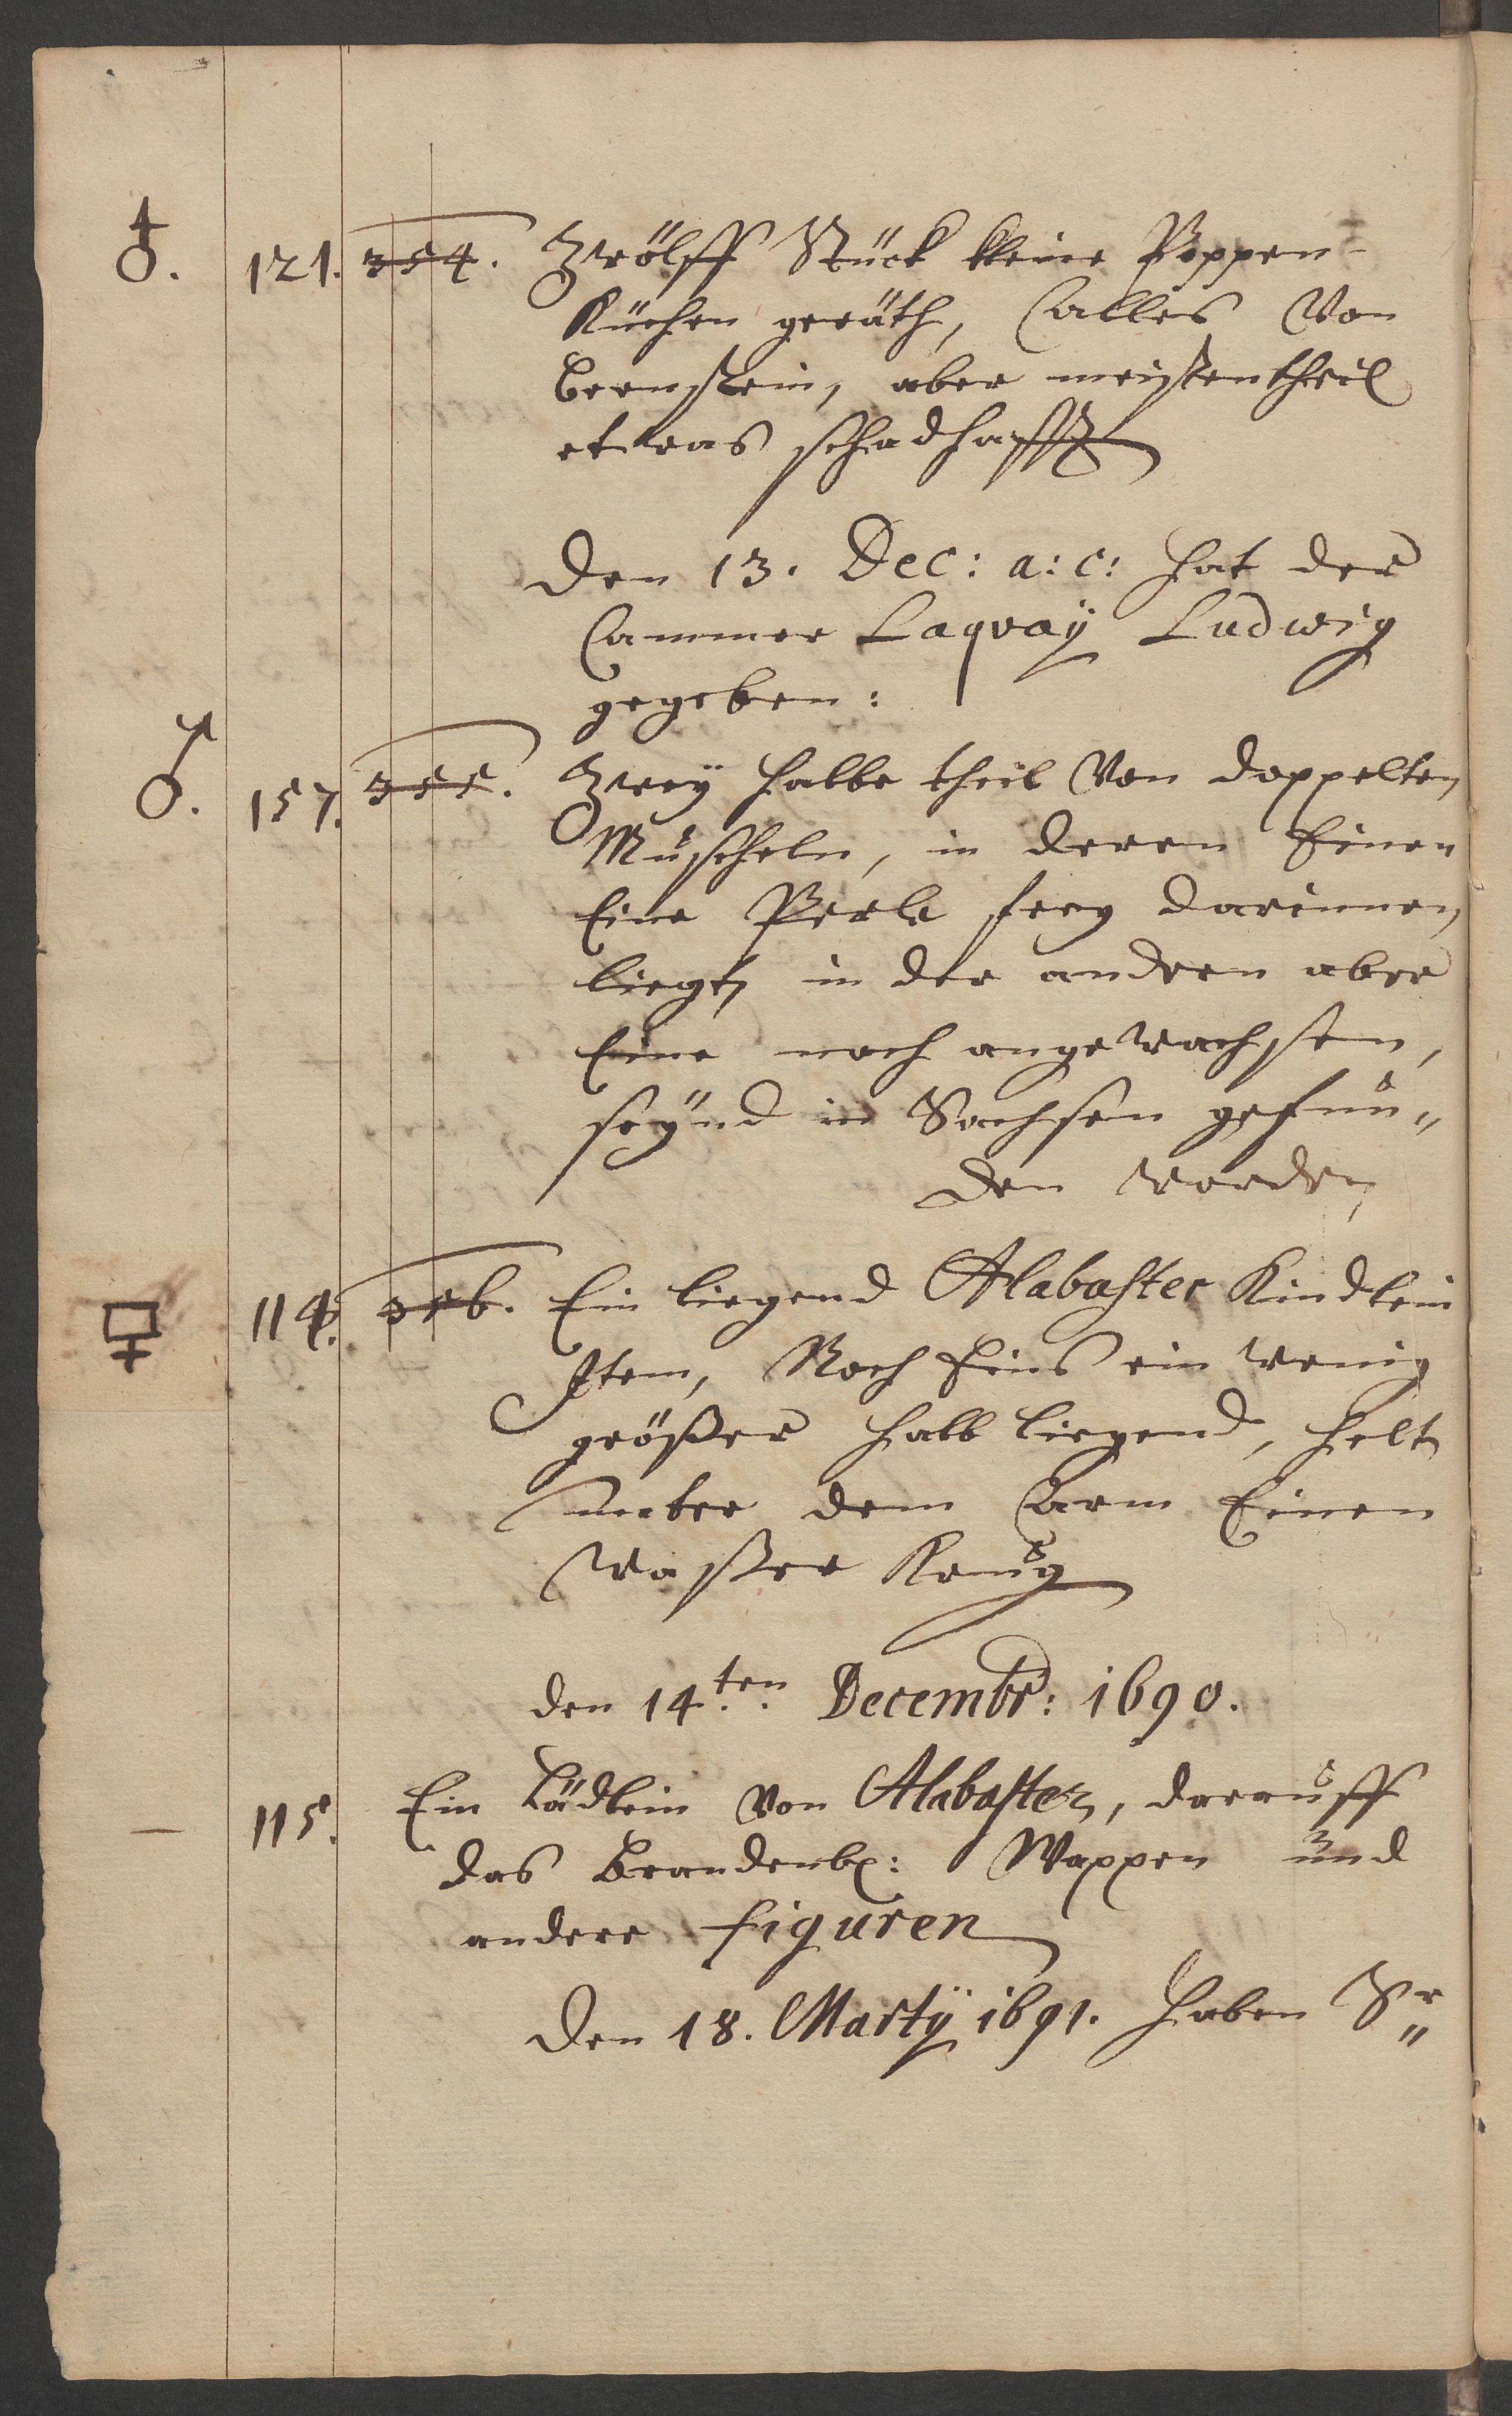 ♁. 121. 354. Zwölff Stück kleine Poppen-
Küchen geräth, alles Von
Bernstein, aber meistentheil
etwas schadhafft
Den 13. Dec: a: c: hat der
Cammer Laqvaÿ Ludwig
gegeben:
♂. 157. 355. Zweÿ halbe theil Von doppelten
Muscheln, in deren Einen
Eine Perle freÿ darinnen
liegt, in der andern aber
Eine noch angewachsen,
seÿnd in Sachsen gefun„
den worden
114. 356. Ein liegend Alabaster Kindlein
Item, Noch Eins ein wenig
größer halb liegend, helt
unter dem Arm Einen
Waßer Krug
den 14.ten Decembr: 1690.
— 115. Ein Lädlein von Alabaster, darauff
das Brandenb: Wappen und
andere figuren
Den 18. Martÿ 1691. haben Sr„